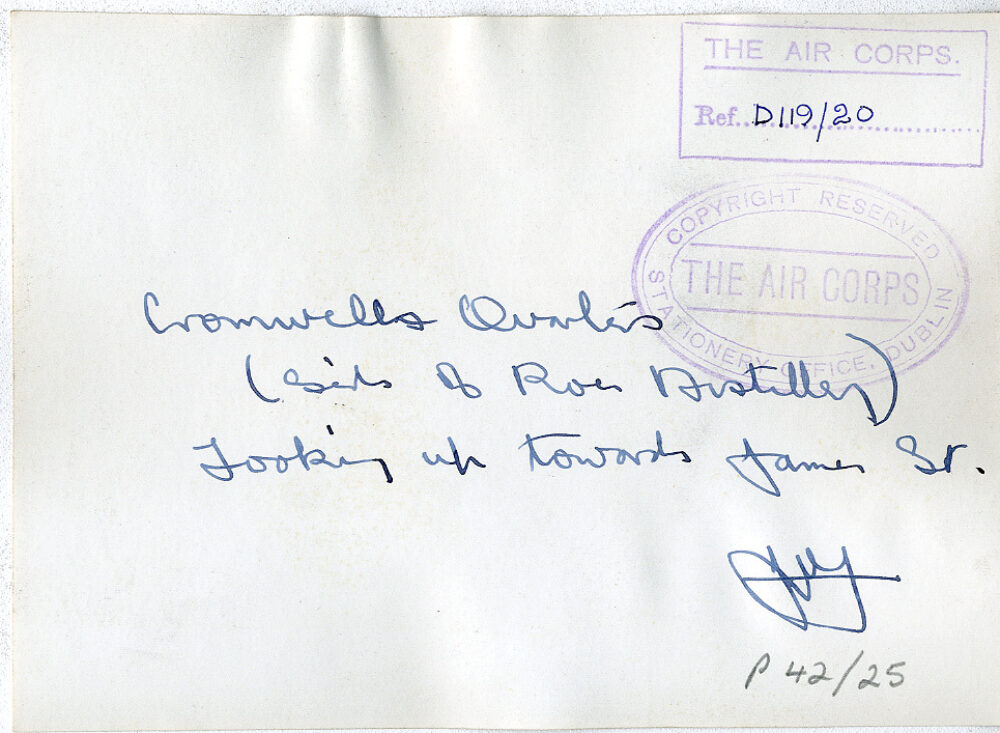 THE AIR CORPS.
Ref. D119/20
COPYRIGHT RESERVED
THE AIR CORPS
STATIONERY OFFICE, DUBLIN
Cromwells Quarters
(Side of Roes Distillery)
Looking up towards James St.
P 42/25